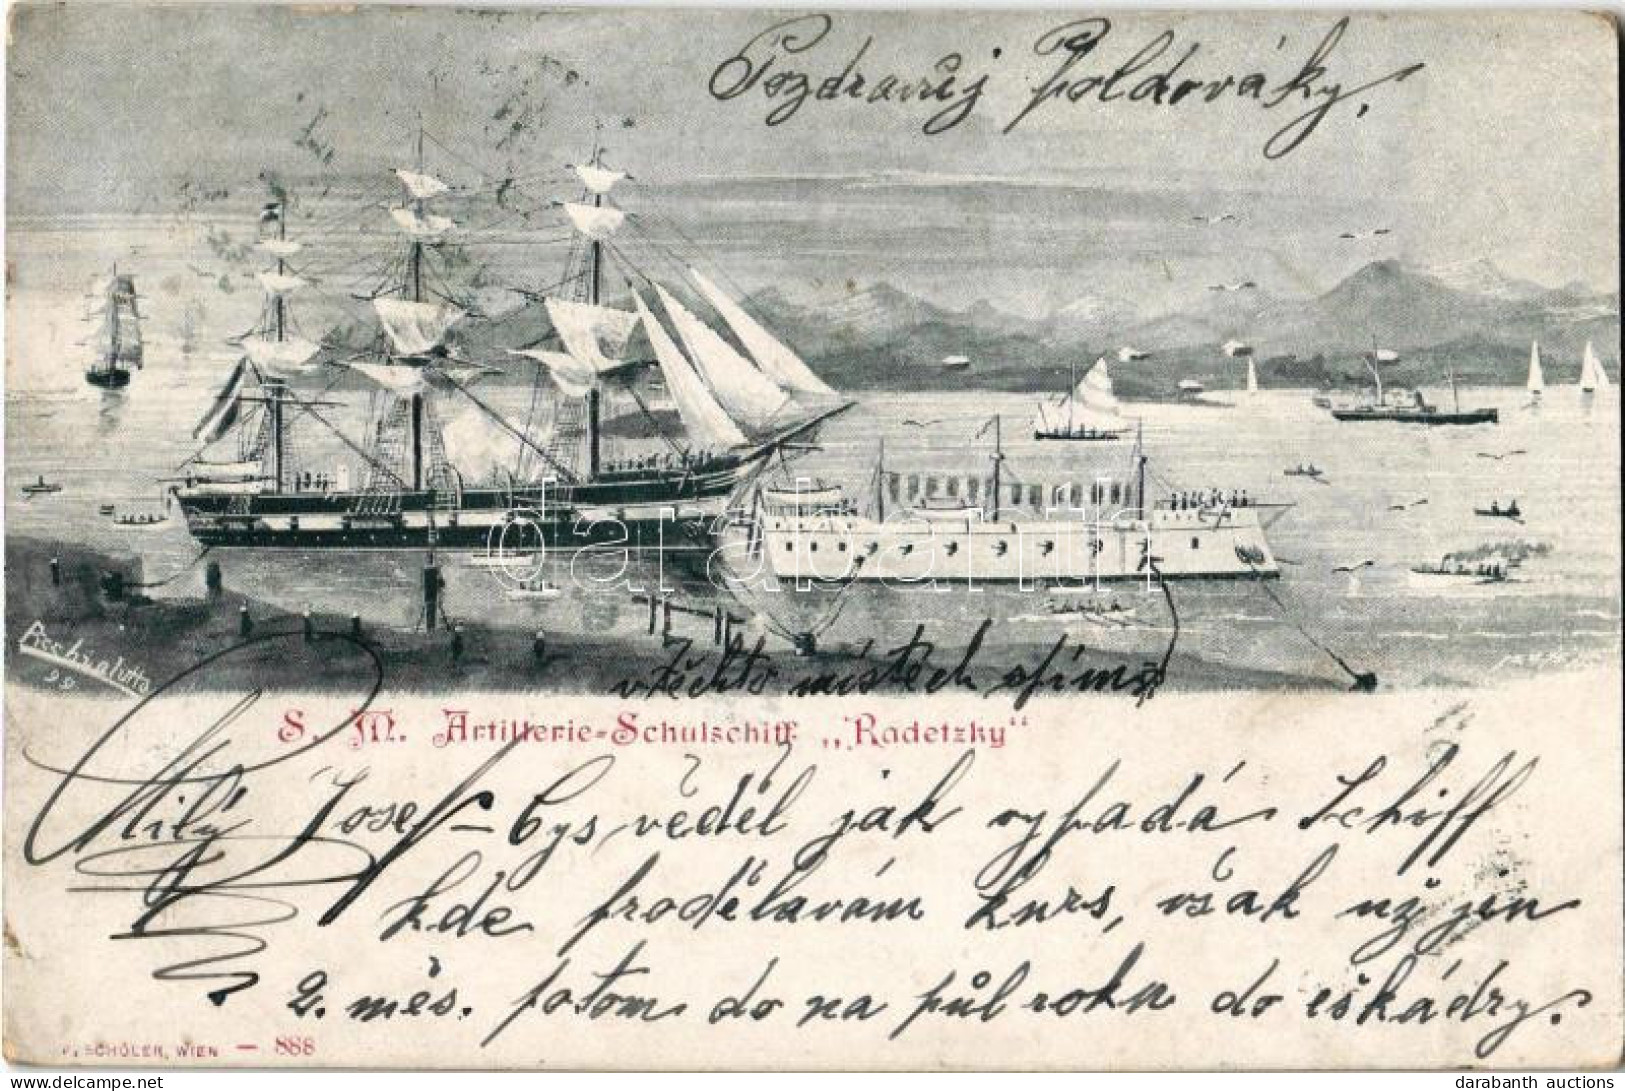 Pozdravůj Poldováky.
Piechralutto
99
v těchto místech spíme
S. M. Artillerie-Schulschiff „Radetzky“
Milý Josef – bys věděl jak vypadá Schiff
kde prodělavám kurs, však už jen
2. měs. potom do na půl roku do eškádry.
F. SCHÖLER, WIEN — 888
darabanth
darabanth auctions